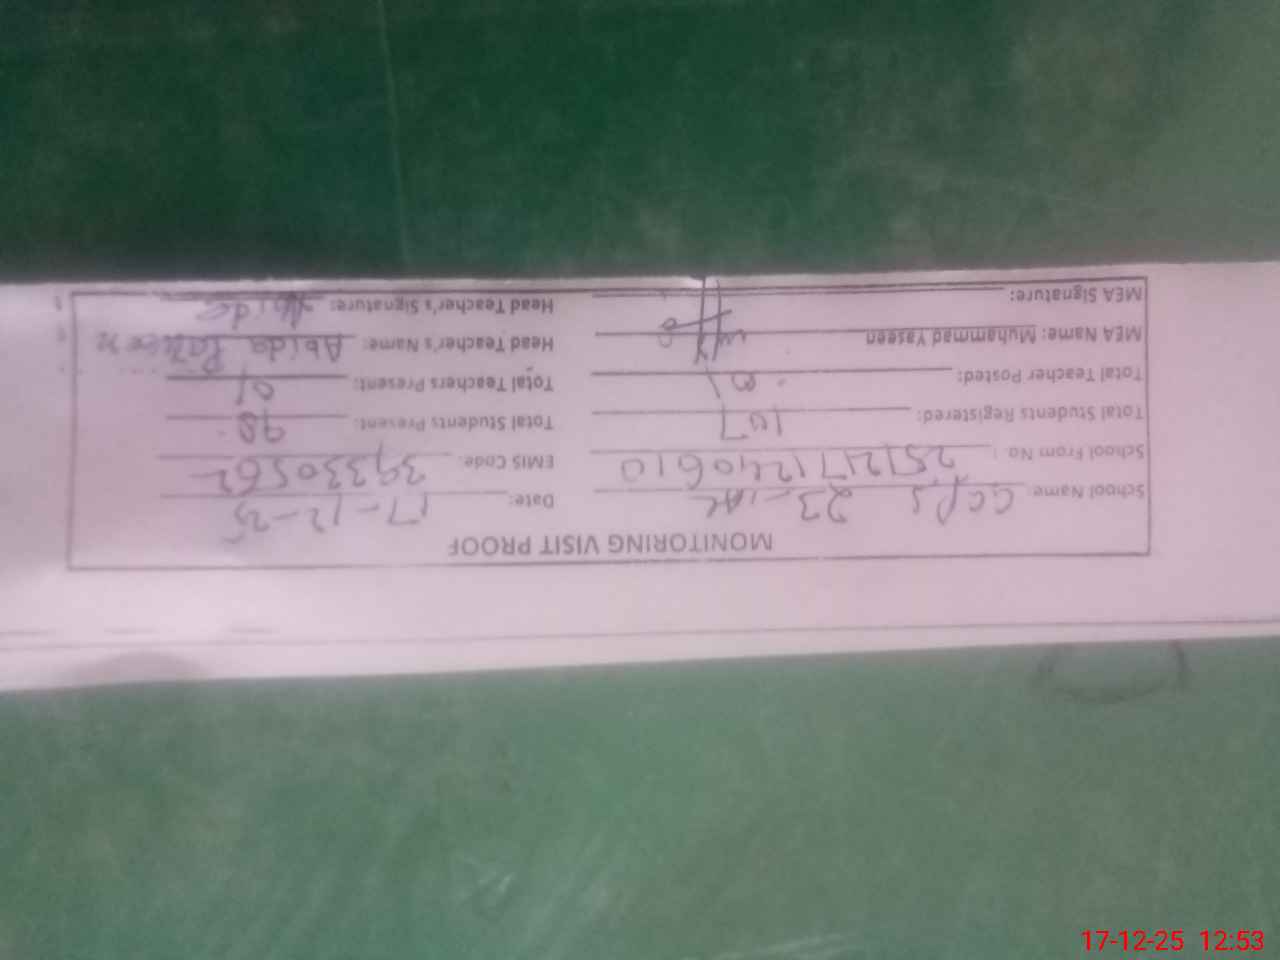 MONITORING VISIT PROOF
School Name: GGPS 23-AL Date: 17-12-25
School From No: 2512171240610 EMIS Code: 39330562
Total Students Registered: 107 Total Students Present: 98
Total Teacher Posted: 01 Total Teachers Present: 01
MEA Name: Muhammad Yaseen Head Teacher's Name: Abida Parveen
MEA Signature: Head Teacher's Signature: Abida
17-12-25 12:53